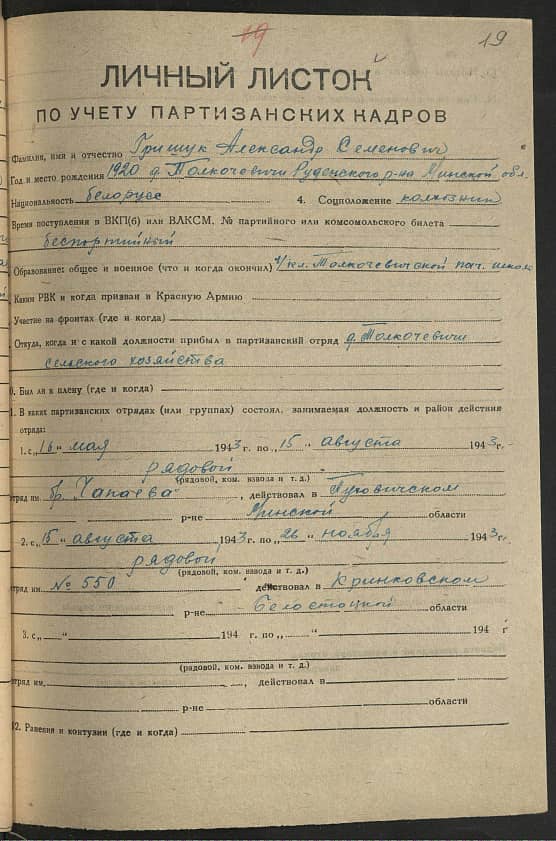 19
19
ЛИЧНЫЙ ЛИСТОК
ПО УЧЕТУ ПАРТИЗАНСКИХ КАДРОВ
Фамилия, имя и отчество Грищук Александр Семенович
Год и место рождения 1920 д. Толкачевичи Руденского р-на Минской обл.
Национальность белорусс 4. Соцположение колхозник
Время поступления в ВКП(б) или ВЛКСМ, № партийного или комсомольского билета
беспартийный
Образование: общее и военное (что и когда окончил) кл. Толкочевичской нач. школы
Каким РВК и когда призван в Красную Армию
Участие на фронтах (где и когда)
Откуда, когда и с какой должности прибыл в партизанский отряд д. Толкочевичи
сельского хозяйства
0. Был ли в плену (где и когда)
1. В каких партизанских отрядах (или группах) состоял, занимаемая должность и район действия
отряда:
1. с „16" мая 1943 г. по „15" августа 1943 г.
рядовой
(рядовой, ком. взвода и т. д.)
отряд им. бр. "Чапаева", действовал в Пуховичском
р-не Минской области
2. с „15" августа 1943 г. по „26" ноября 1943 г.
рядовой
(рядовой, ком. взвода и т. д.)
отряд им. № 550 действовал в Кринковском
р-не Белостоцкой области
3. с „ " 194 г. по „ " 194 г
(рядовой, ком. взвода и т. д.)
отряд им. , действовал в
р-не области
12. Ранения и контузии (где и когда)